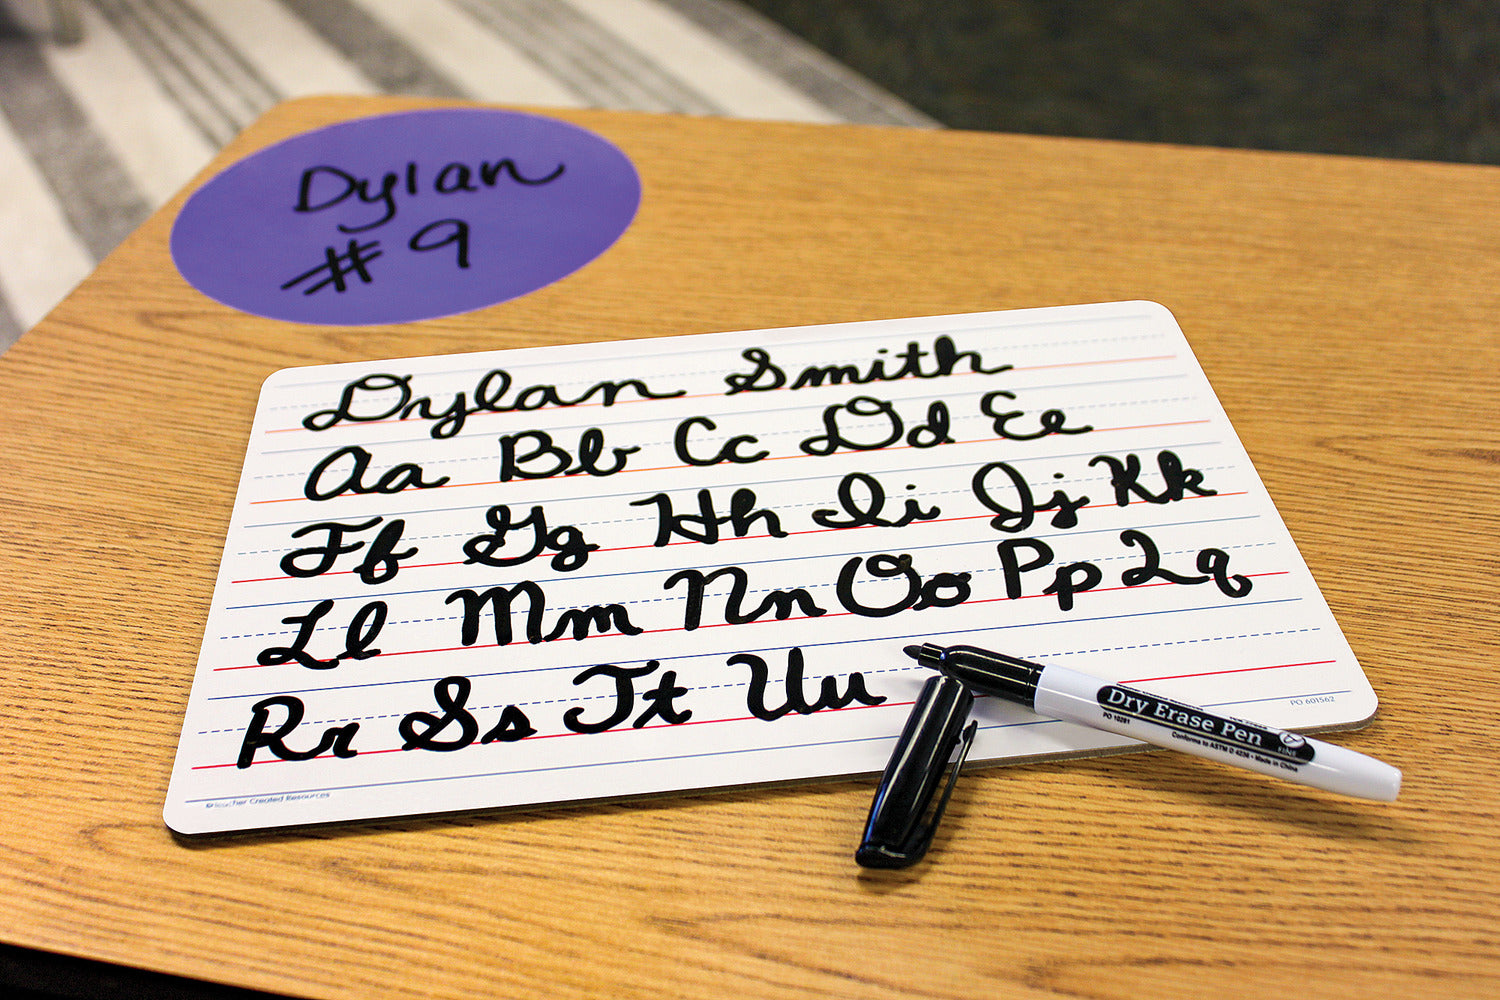 Dylan
# 9
Dylan Smith
Aa Bb Cc Dd Ee
Ff Gg Hh Ii Jj Kk
Ll Mm Nn Oo Pp Qq
Rr Ss Tt Uu
Dry Erase Pen
PO 10281
Conforms to ASTM D 4236 • Made in China
PO 601562
©Teacher Created Resources